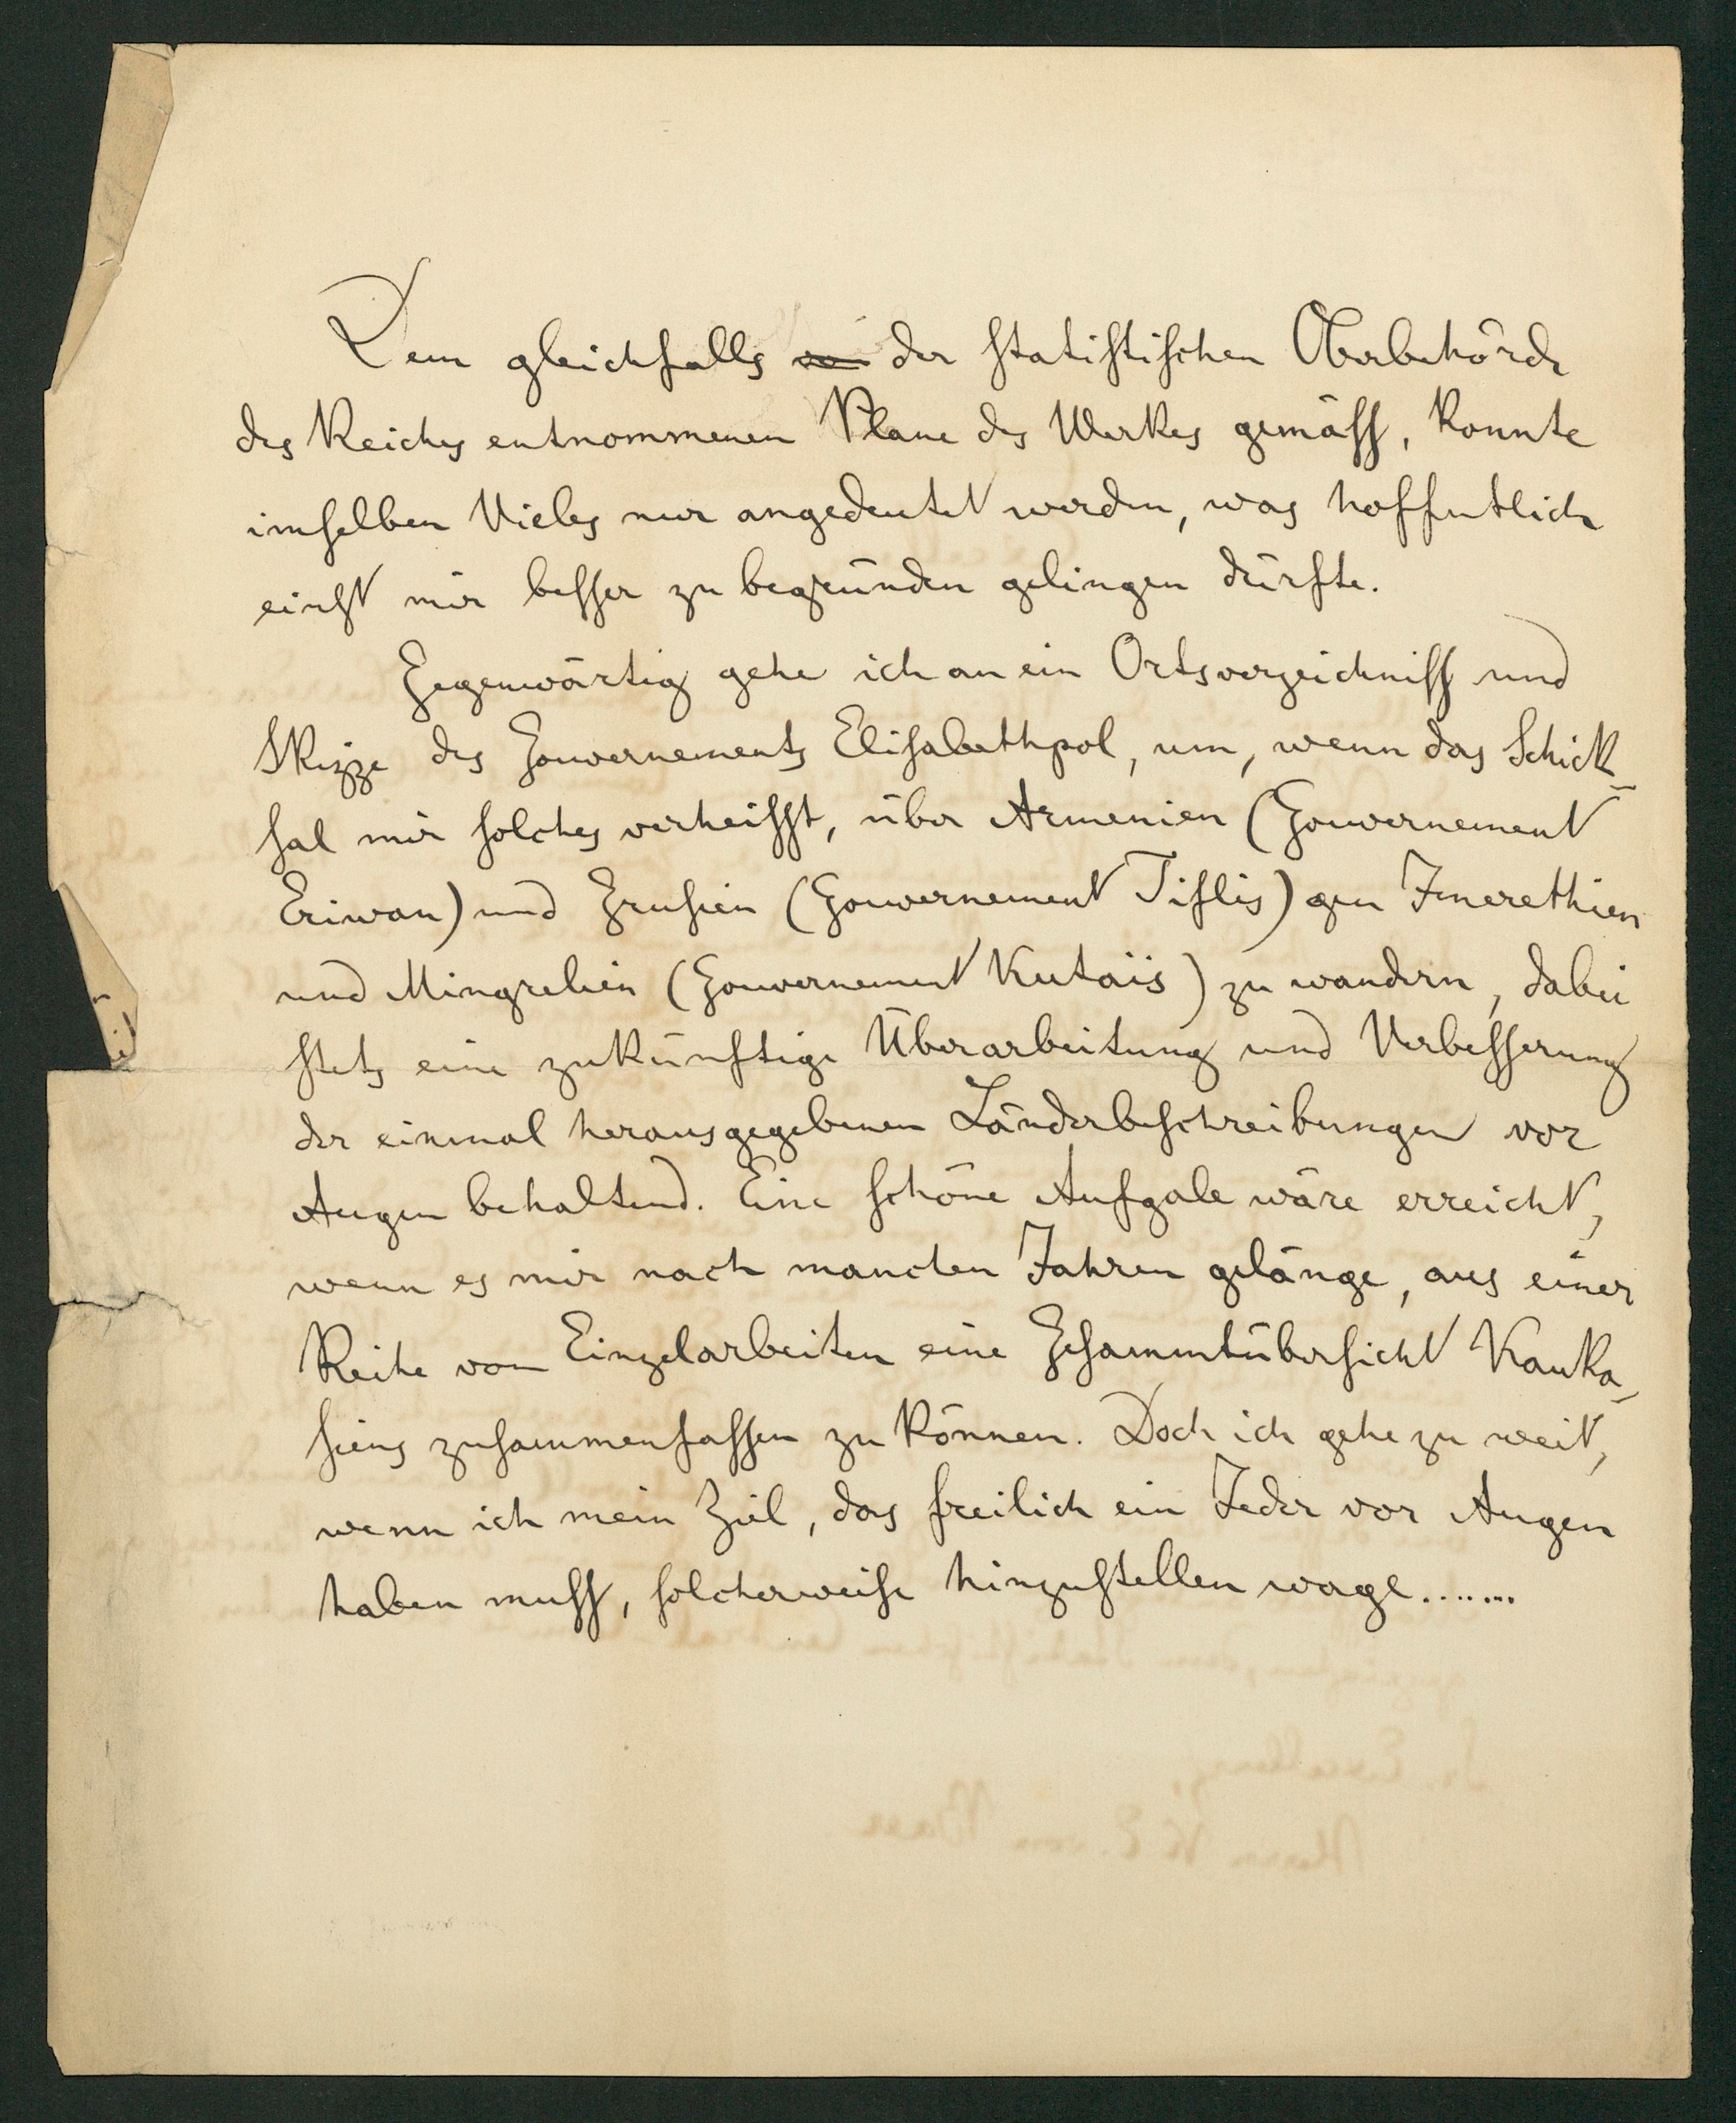 Dem gleichfalls von der statistischen Oberbehörde
des Reiches entnommenen Plane des Werkes gemäss, konnte
imselben Vieles nur angedeutet werden, was hoffentlich
einst mir besser zu begründen gelingen dürfte.
Gegenwärtig gehe ich an ein Ortsverzeichniss und
Skizze des Gouvernements Elisabethpol, um, wenn das Schick-
sal mir solches verheisst, über Armenien (Gouvernement
Eriwan) und Grusien (Gouvernement Tiflis) gen Imerethien
und Mingrelien (Gouvernement Kutaïs) zu wandern, dabei
stets eine zukünftige Überarbeitung und Verbesserung
der einmal herausgegebenen Länderbeschreibungen vor
Augen behaltend. Eine schöne Aufgabe wäre erreicht,
wenn es mir nach manchen Jahren gelänge, aus einer
Reihe von Einzelarbeiten eine Gesammtübersicht Kauka-
siens zusammenfassen zu können. Doch ich gehe zu weit,
wenn ich mein Ziel, das freilich ein Jeder vor Augen
haben muss, solcherweise hinzustellen wage.......